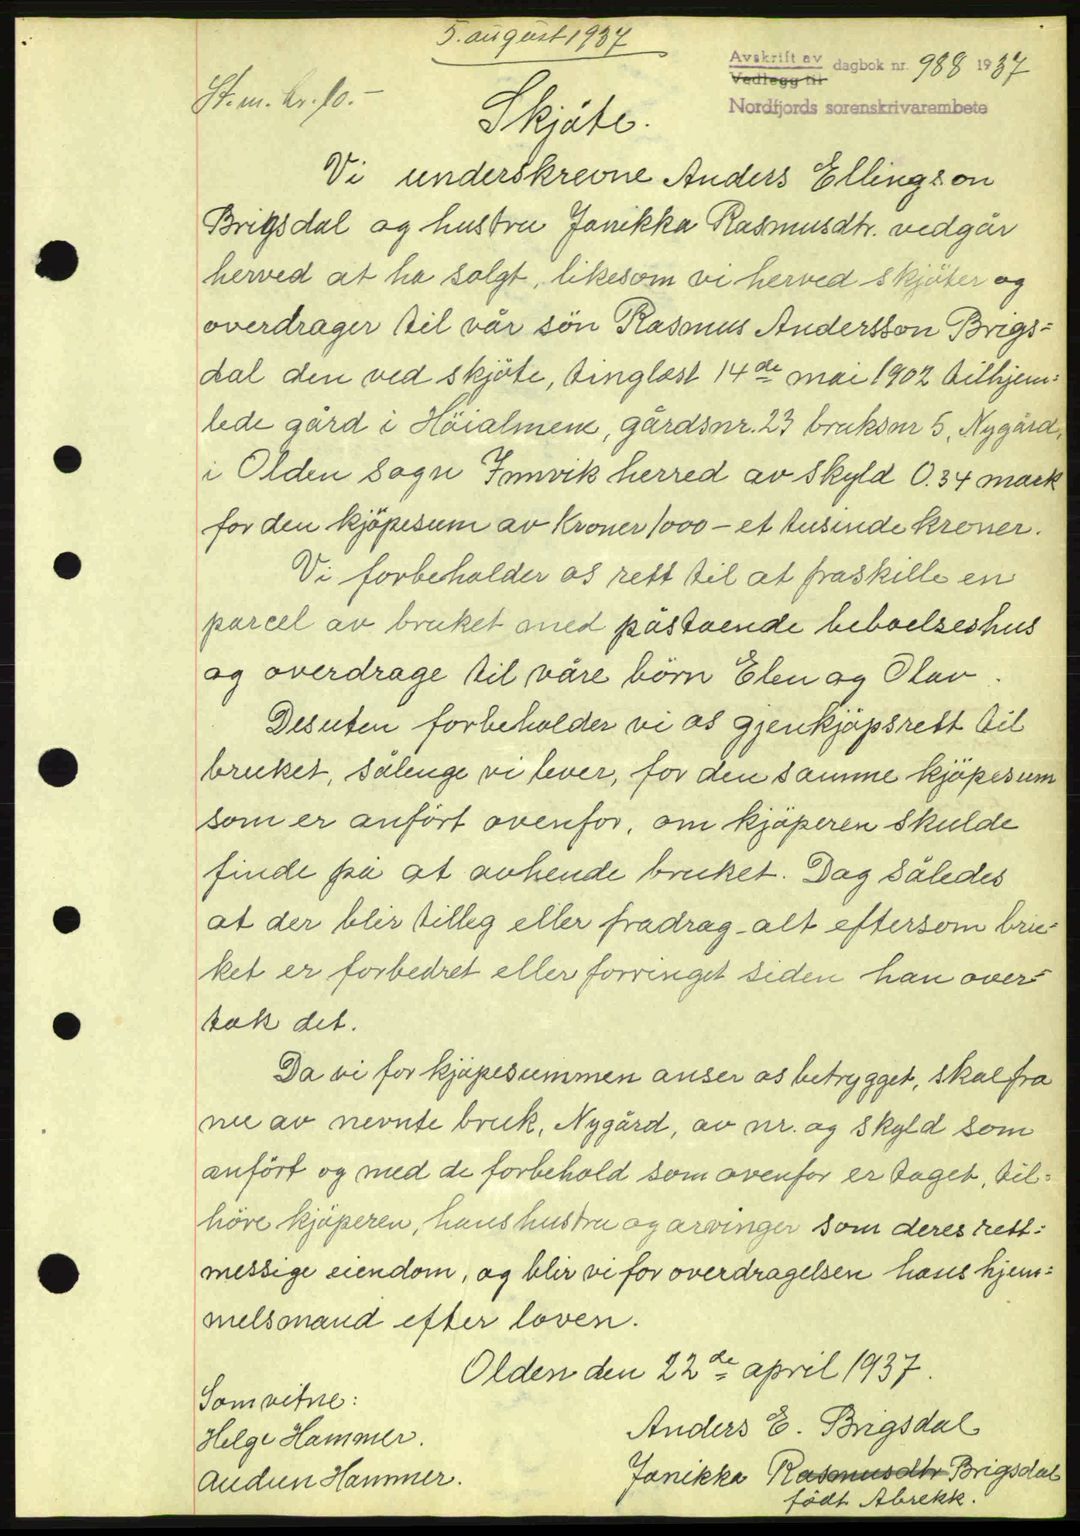 5. august 1937
Avskrift av
Vedlegg til
dagbok nr. 988 1937
Nordfjords sorenskrivarembete
St.m. kr. 10.-
Skjöte.
Vi underskrevne Anders Ellingson
Brigsdal og hustru Janikka Rasmusdtr. vedgår
herved at ha solgt, likesom vi herved skjöter og
overdrager til vår sön Rasmus Andersson Brigs=
dal den ved skjöte, tinglæst 14de mai 1902 tilhjem=
lede gård i Höialmenn, gårdsnr. 23 bruksnr 5, Nygård,
i Olden sogn Innvik herred av skyld 0.34 mark
for den kjöpesum av Kroner 1000 - et tusinde kroner.
Vi forbeholder os rett til at fraskille en
parcel av bruket med påstaende beboelseshus
og overdrage til våre börn Elen og Olav.
Desuten forbeholder vi os gjenkjöpsrett til
bruket, sålenge vi lever, for den samme kjöpesum
som er anfört ovenfor, om kjöperen skulde
finde på at avhende bruket. Dog således
at der blir tilleg eller fradrag alt eftersom bru=
ket er forbedret eller forringet siden han over=
tok det.
Da vi for kjöpesummen anser os betrygget, skal fra
nu av nevnte bruk, Nygård, av nr. og skyld som
anfört og med de forbehold som ovenfor er taget, til=
höre kjöperen, hans hustru og arvinger som deres rett=
messige eiendom, og blir vi for overdragelsen hans hjem=
melsmand efter loven.
Olden den 22de april 1937.
Som vitne:
Helge Hammer.
Audun Hammer.
Anders E. Brigsdal
Janikka Rasmusdtr Brigsdal
födt Abrekk.